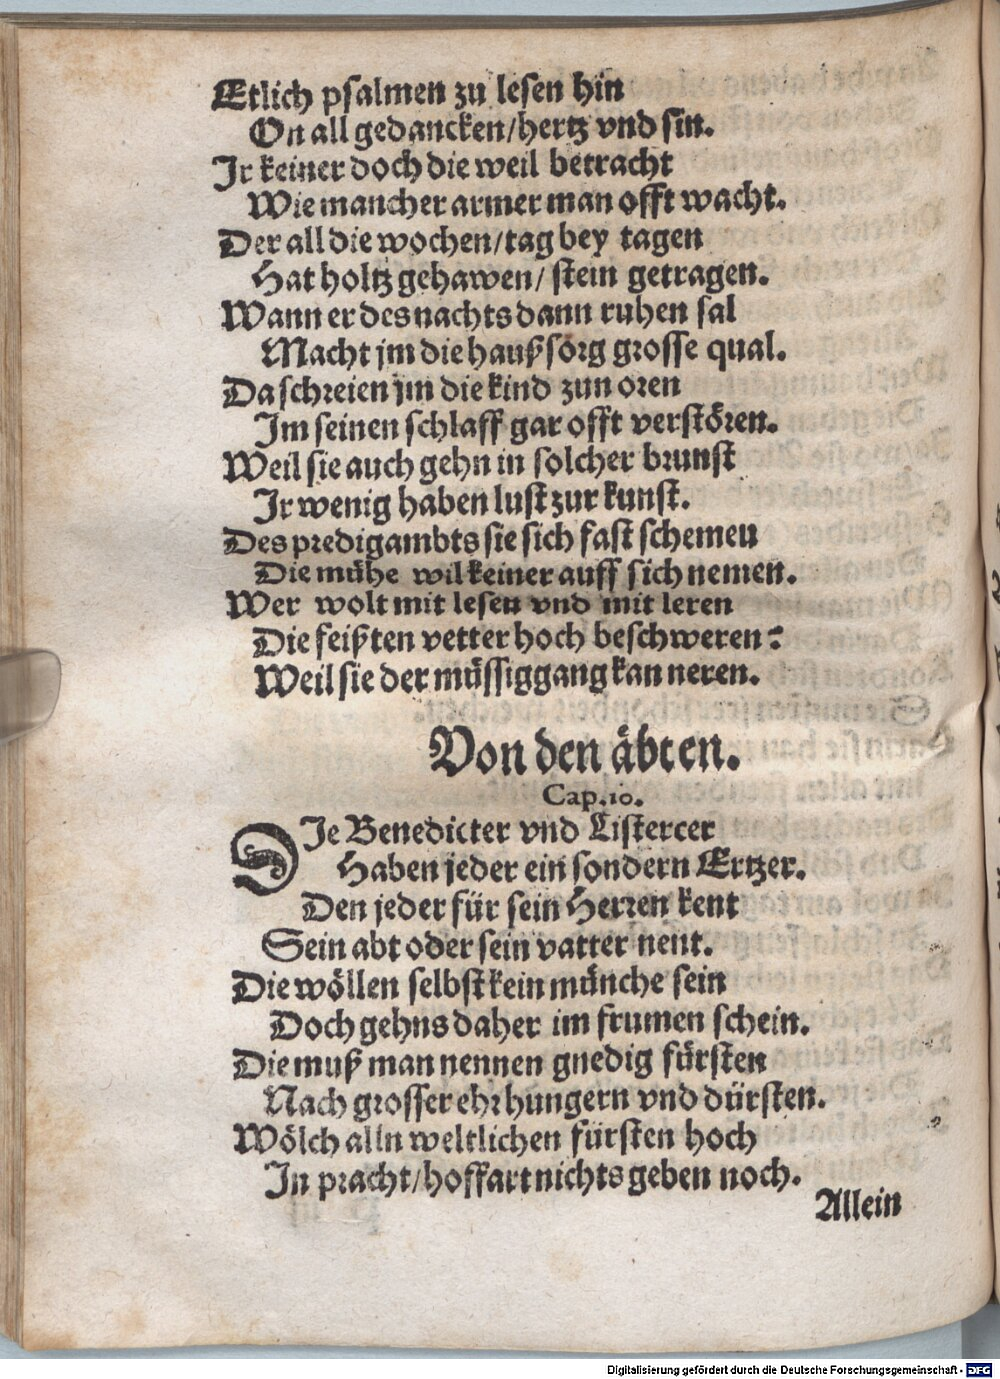 Etlich psalmen zu lesen hin
On all gedancken/hertz vnd sin.
Ir keiner doch die weil betracht
Wie mancher armer man offt wacht.
Der all die wochen/tag bey tagen
Hat holtz gehawen/ stein getragen.
Wann er des nachts dann ruhen sal
Macht jm die haußsörg grosse qual.
Da schreien jm die kind zun oren
Im seinen schlaff gar offt verstören.
Weil sie auch gehn in solcher brunst
Ir wenig haben lust zur kunst.
Des predigambts sie sich fast schemeu
Die mühe wil keiner auff sich nemen.
Wer wolt mit lesen vnd mit leren
Die feißten vetter hoch beschweren:
Weil sie der müssiggang kan neren.
Von den äbten.
Cap.10.
DIe Benedicter vnd Cistercer
Haben jeder ein sondern Ertzer.
Den jeder für sein Herren kent
Sein abt oder sein vatter nent.
Die wöllen selbst kein münche sein
Doch gehns daher im frumen schein.
Die muß man nennen gnedig fürsten
Nach grosser ehr hungern vnd dürsten.
Wölch alln weltlichen fürsten hoch
In pracht/hoffart nichts geben noch.
Allein
Digitalisierung gefördert durch die Deutsche Forschungsgemeinschaft - DFG